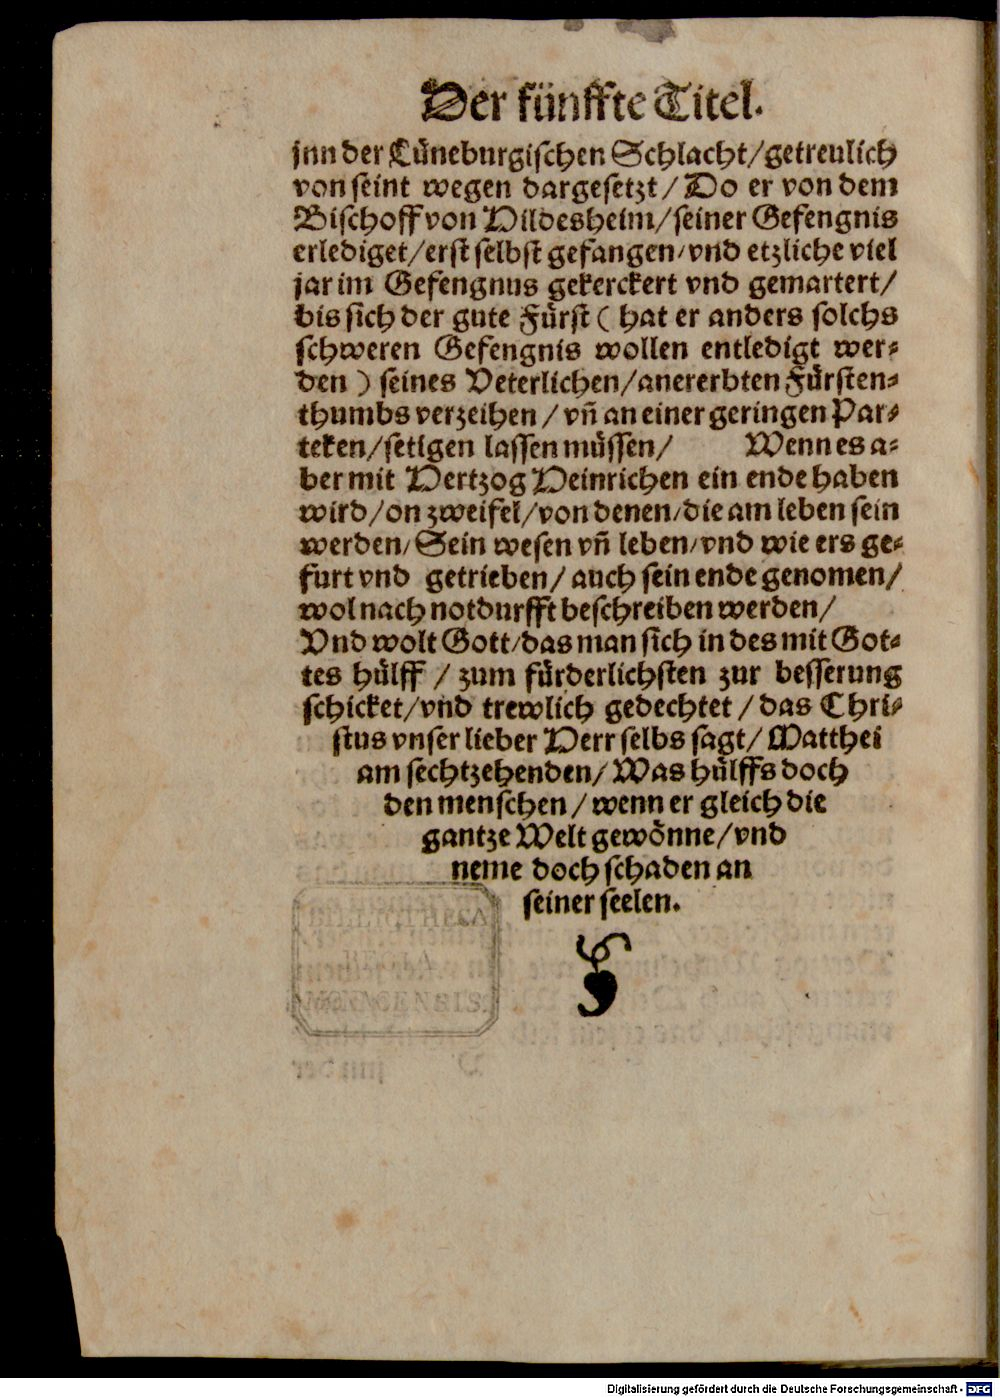 Der fünffte Titel.
jnn der Lüneburgischen Schlacht/getreulich
von seint wegen dargesetzt/Do er von dem
Bischoff von Hildesheim/seiner Gefengnis
erlediget/erst selbst gefangen/vnd etzliche viel
jar im Gefengnus gekerckert vnd gemartert/
bis sich der gute Fürst ( hat er anders solchs
schweren Gefengnis wollen entledigt wer⸗
den ) seines Veterlichen/anererbten Fürsten⸗
thumbs verzeihen / vñ an einer geringen Par⸗
teken/setigen lassen müssen/ Wenn es a⸗
ber mit Hertzog Heinrichen ein ende haben
wird/on zweifel/von denen/die am leben sein
werden/Sein wesen vñ leben/vnd wie ers ge⸗
furt vnd getrieben/auch sein ende genomen/
wol nach notdurfft beschreiben werden/
Vnd wolt Gott/das man sich in des mit Got⸗
tes hülff / zum fürderlichsten zur besserung
schicket/vnd trewlich gedechtet / das Chri⸗
stus vnser lieber Herr selbs sagt/ Matthei
am sechtzehenden/Was hülffs doch
den menschen / wenn er gleich die
gantze Welt gewönne/vnd
neme doch schaden an
seiner seelen.
BIBLIOTHECA
REGIA
MONACENSIS.
Digitalisierung gefördert durch die Deutsche Forschungsgemeinschaft - DFG